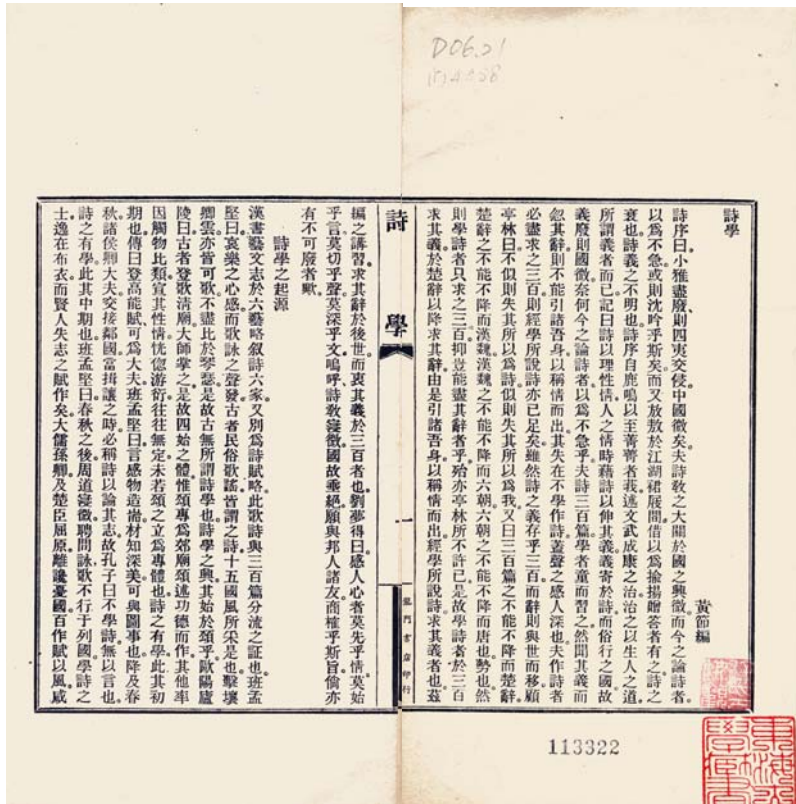 D06.21
詩學
黃節編
詩序曰小雅盡廢則四夷交侵中國微矣夫詩教之大關於國之興微而今之論詩者。
以爲不急或則沈吟乎斯矣而又放敖於江湖裙屐間借以爲揄揚贈答者有之詩之
衰也詩義之不明也詩序自鹿鳴以至菁菁者莪述文武成康之治治之以生人之道。
所謂義者而已記曰詩以理性情人之情時藉詩以伸其義義寄於詩而俗行之國故
義廢則國微奈何今之論詩者以爲不急乎夫詩三百篇學者童而習之然聞其義而
忽其辭則不能引諸吾身以稱情而出其失在不學作詩蓋聲之感人深也夫作詩者
必盡求之三百則經學所說詩亦已足矣雖然詩之義存乎三百而辭則與世而移顧
亭林曰不似則失其所以爲詩似則失其所以爲我又曰三百篇之不能不降而楚辭。
楚辭之不能不降而漢魏漢魏之不能不降而六朝六朝之不能不降而唐也勢也然
則學詩者只求之三百抑豈能盡其辭者乎殆亦亭林所不許已是故學詩者於三百
求其義於楚辭以降求其辭由是引諸吾身以稱情而出經學所說詩求其義者也茲
詩學
一
龍門書店印行
編之講習求其辭於後世而衷其義於三百者也劉夢得曰感人心者莫先乎情莫始
乎言莫切乎聲莫深乎文嗚呼詩敎寖微國故垂絕願與邦人諸友商榷乎斯旨倘亦
有不可廢者歟
詩學之起源
漢書藝文志於六藝略叙詩六家又別爲詩賦略此歌詩與三百篇分流之証也班孟
堅曰哀樂之心感而歌詠之聲發古者民俗歌謠皆謂之詩十五國風所采是也擊壤
卿雲亦皆可歌不盡比於琴瑟是故古無所謂詩學也詩學之興其始於頌乎歐陽廬
陵曰古者登歌清廟大師掌之是故四始之體惟頌專爲郊廟頌述功德而作其他率
因觸物比類宣其性情恍惚游衍往往無定未若頌之立爲專體也詩之有學此其初
期也傳曰登高能賦可以爲大夫班孟堅曰言感物造耑材知深美可與圖事也降及春
秋諸侯卿大夫交接鄰國當揖讓之時必稱詩以諭其志故孔子曰不學詩無以言也
詩之有學此其中期也班孟堅曰春秋之後周道寖微聘問詠歌不行于列國學詩之
士逸在布衣而賢人失志之賦作矣大儒孫卿及楚臣屈原離讒憂國百作賦以風咸
113322